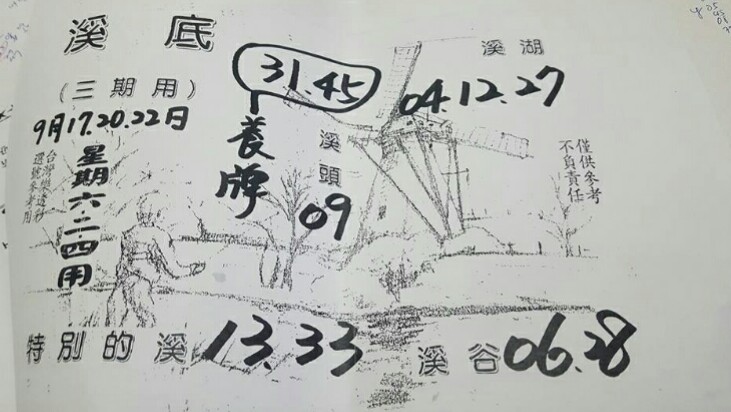 溪底
(三期用)
9月17.20.22日
星期六.二.四用
31.45
養牌
溪頭
09
溪湖
04.12.27
僅供參考
不負責任
特別的溪 13.33
溪谷 06.28